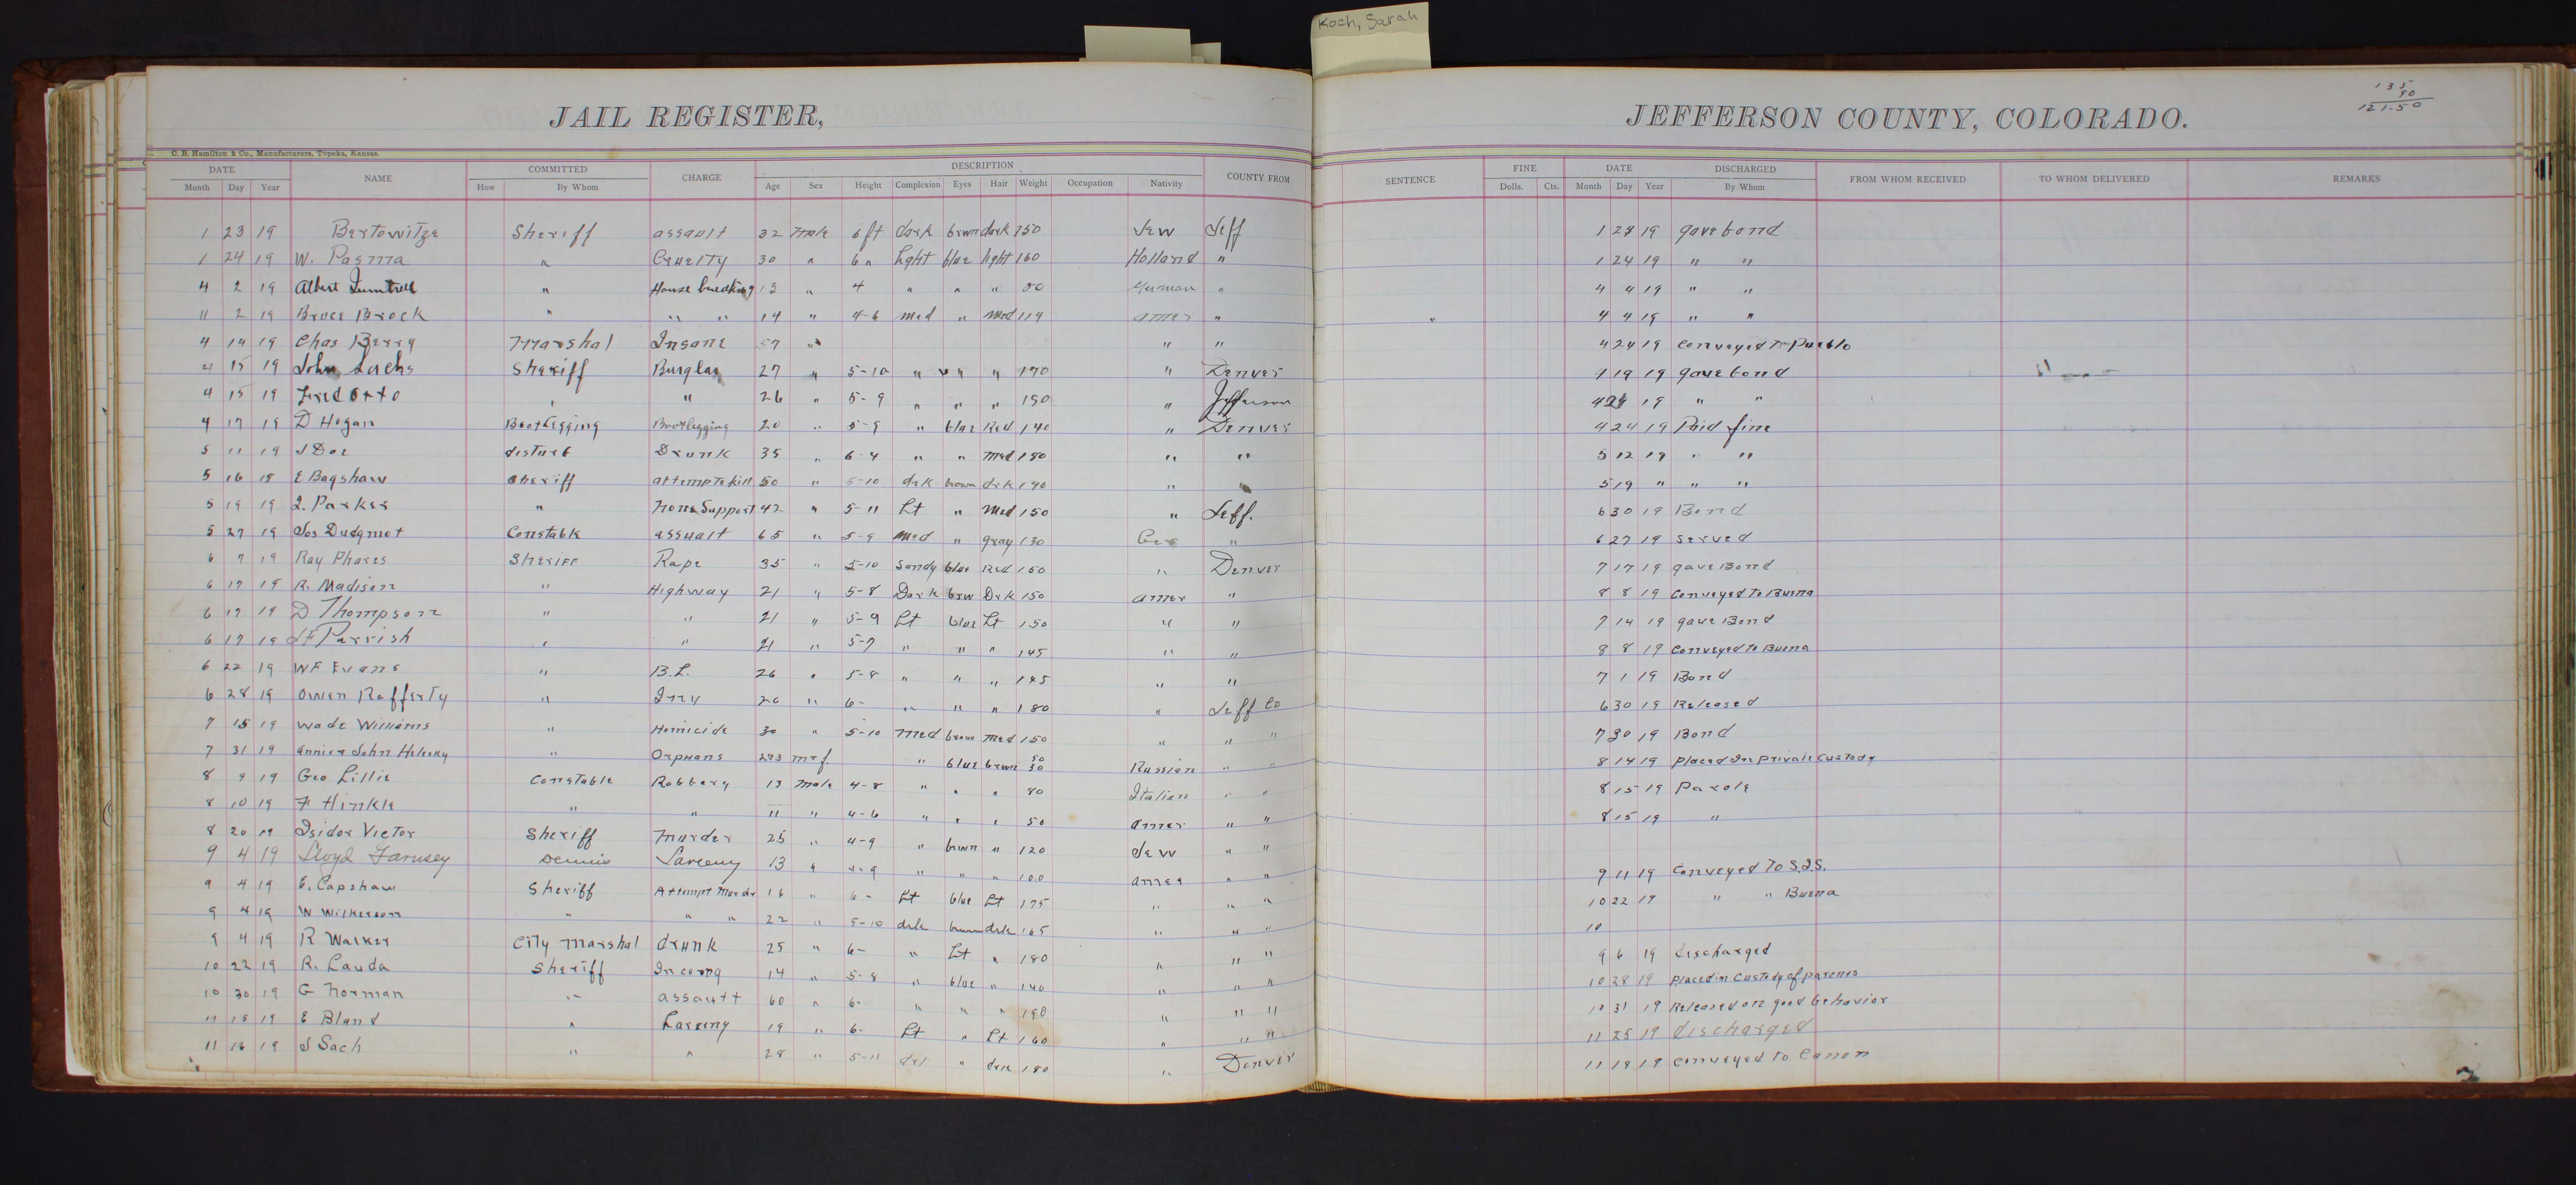 Koch, Sarah
135
90
121.50
JAIL REGISTER, JEFFERSON COUNTY, COLORADO.
C. B. Hamilton & Co., Manufacturers, Topeka, Kansas.
DATE NAME COMMITTED CHARGE DESCRIPTION COUNTY FROM SENTENCE FINE DATE DISCHARGED FROM WHOM RECEIVED TO WHOM DELIVERED REMARKS
Month Day Year How By Whom Age Sex Height Complexion Eyes Hair Weight Occupation Nativity Dolls. Cts. Month Day Year By Whom
1 23 19 Bertowitze Sheriff assault 32 male 6 ft dark brwn dark 150 Jew Jeff 1 24 19 gave bond
1 24 19 W. Pasma " Cruelty 30 " 6 " light blue light 160 Holland " 1 24 19 " "
4 2 19 Albert " House breaking 13 " 4 " " " 80 German " 4 4 19 " "
4 2 19 Bruce Brock " " " 14 " 4-6 med " med 119 amer " " 4 4 19 " "
4 14 19 Chas Berry Marshal Insane 57 " " " 4 24 19 Conveyed to Pueblo
4 15 19 John Sachs Sheriff Burglar 27 " 5-10 " " " 170 " Denver 19 19 gave bond
4 15 19 Fred Otto " " 26 " 5-9 " " " 150 " Jefferson 4 19 " "
4 17 19 D Hogan Bootlegging Bootlegging 20 " 5-9 " blue Red 140 " Denver 4 24 19 Paid fine
5 11 19 J Doe disturb Drunk 35 " 6-4 " " med 180 " " 5 12 19 " "
5 16 19 E Bagshaw Sheriff attempt to kill 50 " 5-10 drk brown drk 190 " 5 19 " " "
5 19 19 J. Parker " None Support 42 " 5-11 Lt " Med 150 " Jeff. 6 30 19 Bond
5 27 19 Jos Dudgmot Constable assualt 65 " 5-9 med " gray 130 " 6 27 19 Served
6 7 19 Ray Phares Sheriff Rape 35 " 5-10 Sandy blue Red 150 " Denver 7 17 19 gave Bond
6 17 19 R. Madison " Highway 21 " 5-8 Dark brw Drk 150 amer " 8 8 19 Conveyed To Buena
6 17 19 D Thompson " " 21 " 5-9 Lt blue Lt 150 " " 7 14 19 gave Bond
6 17 19 J F Parrish " " 21 " 5-7 " " " 145 " " 8 8 19 Conveyed to Buena
6 22 19 WF Evans " B.L. 26 " 5-8 " " " 145 " " 7 1 19 Bond
6 28 19 Owen Rafferty " Inv 26 " 6- " " " 180 " Jeff Co 6 30 19 Released
7 15 19 Wade Williams " Homicide 30 " 5-10 Med brown med 150 " " " 7 30 19 Bond
7 31 19 annie & John " Orphans m & f " blue brwn 50 30 Russian " " 8 14 19 placed In private Custody
8 9 19 Geo Lillie Constable Robbery 13 Male 4-8 " " " 80 Italian " " 8 15 19 Parole
8 10 19 F Hinkle " " 11 " 4-6 " " " 50 amer " " 8 15 19 "
8 20 19 Isidor Victor Sheriff murder 25 " 4-9 " brwn " 120 Jew " "
9 4 19 Lloyd Farnsey Dennis Larceny 13 " " " " 100 amer " " 9 11 19 Conveyed To S.I.S.
9 4 19 E. Capshaw Sheriff Attempt Murder 16 " 6- Lt blue Lt 175 " " " 10 22 19 " " Buena
9 4 19 W Wilkerson " " " 22 " 5-10 drk brown drk 165 " " " 10
9 4 19 R Walker City Marshal drunk 25 " 6- " Lt " 180 " " " 9 6 19 discharged
10 22 19 R. Lauda Sheriff Incorrg 14 " 5-8 " blue " 140 " " " 10 28 19 placed in Custody of parents
10 30 19 G Norman " assautt 60 " 6- " " " 190 " " " 10 31 19 Released on good behavior
11 15 19 E Bland " Larceny 19 " 6- Lt " Lt 160 " " " 11 25 19 discharged
11 16 19 J Sach " " 28 " 5-11 drk " drk 180 " Denver 11 19 19 Conveyed to Canon